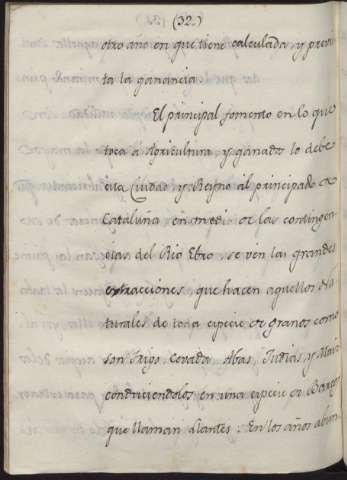 (32.)
otro año en que tiene calculada, y previs
ta la ganancia.
El principal fomento en lo que
toca a Agricultura, y ganado lo debe
esta Ciudad, y Reyno al principado de
Cataluña en medi de las contingen
cias del Rio Ebro, se ven las grandes
extracciones que hacen aquellos na
turales de toda especie de granos como
son trigo, Cevada, Abas, Judias, y Maiz
conduciendolos en una especie de Barcos
que llaman Lantes: En los años abun